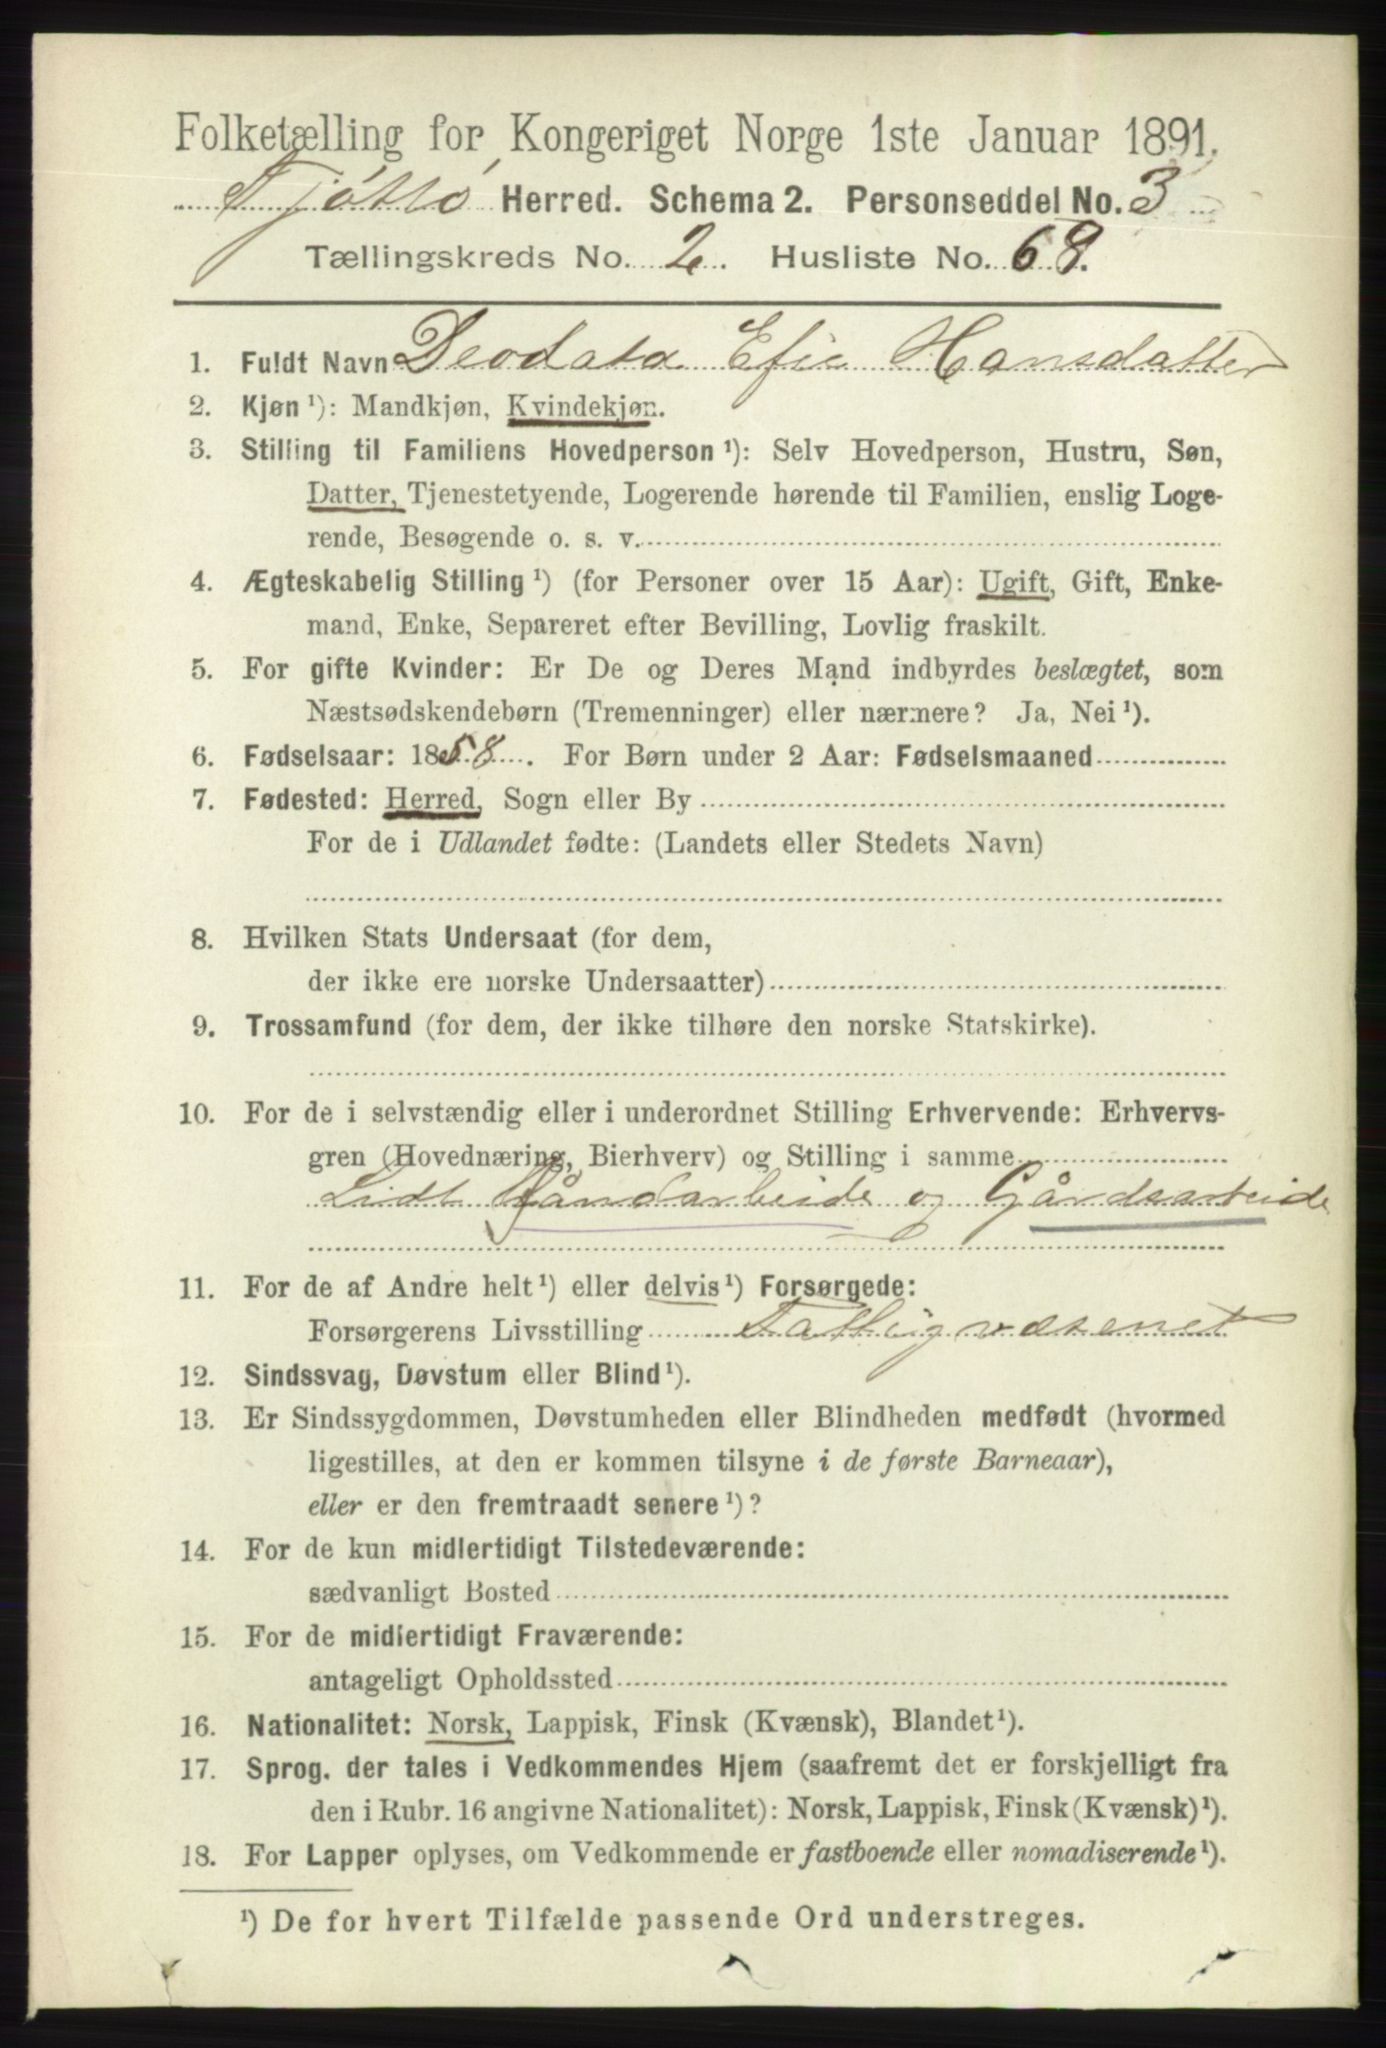 Folketælling for Kongeriget Norge 1ste Januar 1891.
Tjøttø Herred. Schema 2. Personseddel No. 3
Tællingskreds No. 2. Husliste No. 69.
1. Fuldt Navn Deodata Efie Hansdatter
2. Kjøn ¹): Mandkjøn, Kvindekjøn.
3. Stilling til Familiens Hovedperson ¹): Selv Hovedperson, Hustru, Søn,
Datter, Tjenestetyende, Logerende hørende til Familien, enslig Loge-
rende, Besøgende o. s. v.
4. Ægteskabelig Stilling ¹) (for Personer over 15 Aar): Ugift, Gift, Enke-
mand, Enke, Separeret efter Bevilling, Lovlig fraskilt.
5. For gifte Kvinder: Er De og Deres Mand indbyrdes beslægtet, som
Næstsødskendebørn (Tremenninger) eller nærmere? Ja, Nei ¹).
6. Fødselsaar: 1858. For Børn under 2 Aar: Fødselsmaaned
7. Fødested: Herred, Sogn eller By
For de i Udlandet fødte: (Landets eller Stedets Navn)
8. Hvilken Stats Undersaat (for dem,
der ikke ere norske Undersaatter)
9. Trossamfund (for dem, der ikke tilhøre den norske Statskirke).
10. For de i selvstændig eller i underordnet Stilling Erhvervende: Erhvervs-
gren (Hovednæring, Bierhverv) og Stilling i samme
Lidt Håndarbeide og Gårdsarbeide
11. For de af Andre helt ¹) eller delvis ¹) Forsørgede:
Forsørgerens Livsstilling Fattigvæsenet
12. Sindssvag, Døvstum eller Blind ¹).
13. Er Sindssygdommen, Døvstumheden eller Blindheden medfødt (hvormed
ligestilles, at den er kommen tilsyne i de første Barneaar),
eller er den fremtraadt senere ¹)?
14. For de kun midlertidigt Tilstedeværende:
sædvanligt Bosted
15. For de midlertidigt Fraværende:
antageligt Opholdssted
16. Nationalitet: Norsk, Lappisk, Finsk (Kvænsk), Blandet ¹).
17. Sprog, der tales i Vedkommendes Hjem (saafremt det er forskjelligt fra
den i Rubr. 16 angivne Nationalitet): Norsk, Lappisk, Finsk (Kvænsk) ¹).
18. For Lapper oplyses, om Vedkommende er fastboende eller nomadiserende ¹).
¹) De for hvert Tilfælde passende Ord understreges.